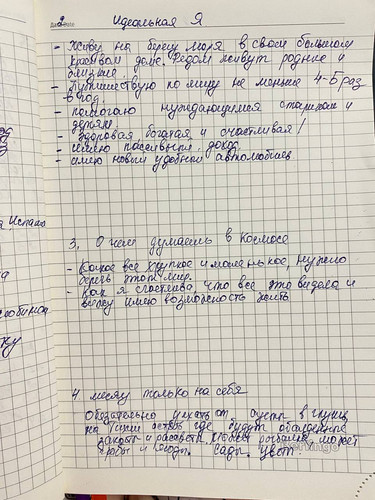 2. Идеальная Я
- Живу на берегу моря в своем большом
красивом доме. Рядом живут родные и
близкие.
- Путешествую по миру не меньше 4-5 раз
в год.
- помогаю нуждающимся старикам и
детям.
- здоровая богатая и счастливая!
- имею пассивный доход
- имею новый удобный автомобиль
3. О чем думаешь в Космосе
- Какое все хрупкое и маленькое, нужно
беречь этот мир.
- Как я счастлива, что все это видела и
имею возможность жить
4. месяц только на себя
Обязательно уехать от суеты в глушь
на остров где будут обалденные
закаты и рассветы. рыбалка, может
грибы и ягоды. сады. цветы
а Испан